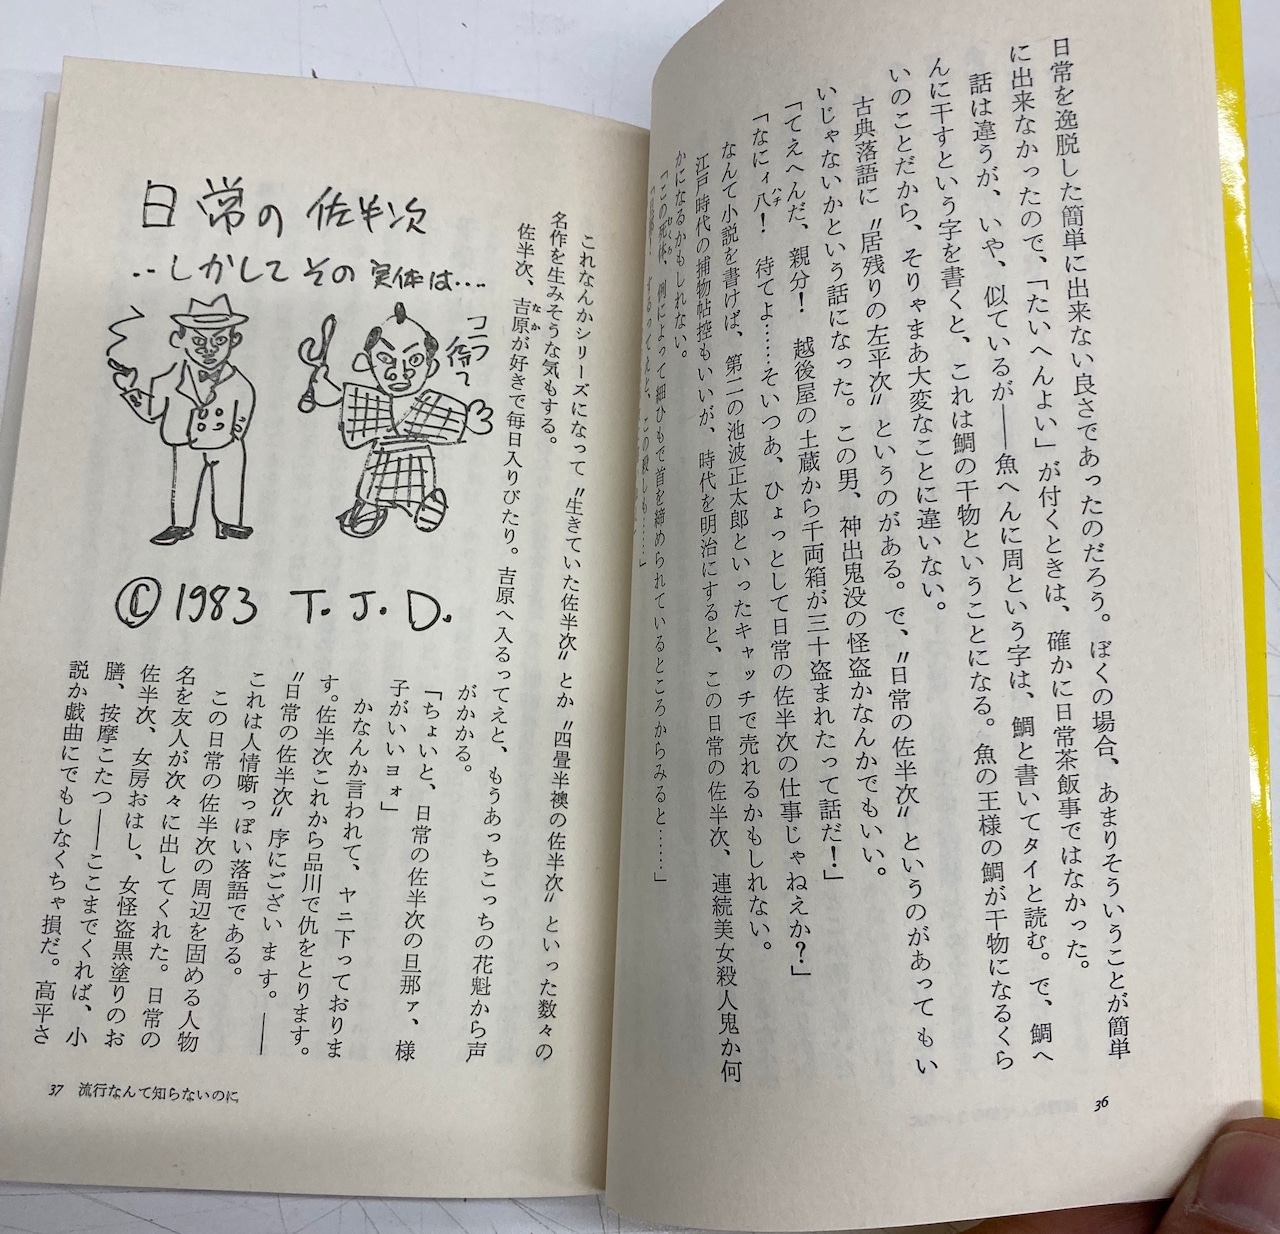 日常を逸脱した簡単に出来ない良さであったのだろう。ぼくの場合、あまりそういうことが簡単
に出来なかったので、「たいへんよい」が付くときは、確かに日常茶飯事ではなかった。
話は違うが、いや、似ているが――魚へんに周という字は、鯛と書いてタイと読む。で、鯛へ
んに干すという字を書くと、これは鯛の干物ということになる。魚の王様の鯛が干物になるくら
いのことだから、そりゃまあ大変なことに違いない。
古典落語に〝居残りの左平次〟というのがある。で、〝日常の佐半次〟というのがあってもい
いじゃないかという話になった。この男、神出鬼没の怪盗かなんかでもいい。
「てえへんだ、親分！　越後屋の土蔵から千両箱が三十盗まれたって話だ！」
「なにィ八！　待てよ……そいつあ、ひょっとして日常の佐半次の仕事じゃねえか？」
ハチ
なんて小説を書けば、第二の池波正太郎といったキャッチで売れるかもしれない。
江戸時代の捕物帖控もいいが、時代を明治にすると、この日常の佐半次、連続美女殺人鬼か何
かになるかもしれない。
「この死体、例によって細ひもで首を締められているところからみると……」
するってえと、この殺しも……」
36
これなんかシリーズになって〝生きていた佐半次〟とか〝四畳半襖の佐半次〟といった数々の
名作を生みそうな気もする。
佐半次、吉原が好きで毎日入りびたり。吉原へ入るってえと、もうあっちこっちの花魁から声
なか
がかかる。
「ちょいと、日常の佐半次の旦那ァ、様
子がいいョォ」
かなんか言われて、ヤニ下っておりま
す。佐半次これから品川で仇をとります。
〝日常の佐半次〟序にございます。――
これは人情噺っぽい落語である。
この日常の佐半次の周辺を固める人物
名を友人が次々に出してくれた。日常の
佐半次、女房おはし、女怪盗黒塗りのお
膳、按摩こたつ――ここまでくれば、小
説か戯曲にでもしなくちゃ損だ。高平さ
日常の佐半次
‥しかしてその実体は‥‥
コラ
待て
© 1983 T.J.D.
37　流行なんて知らないのに